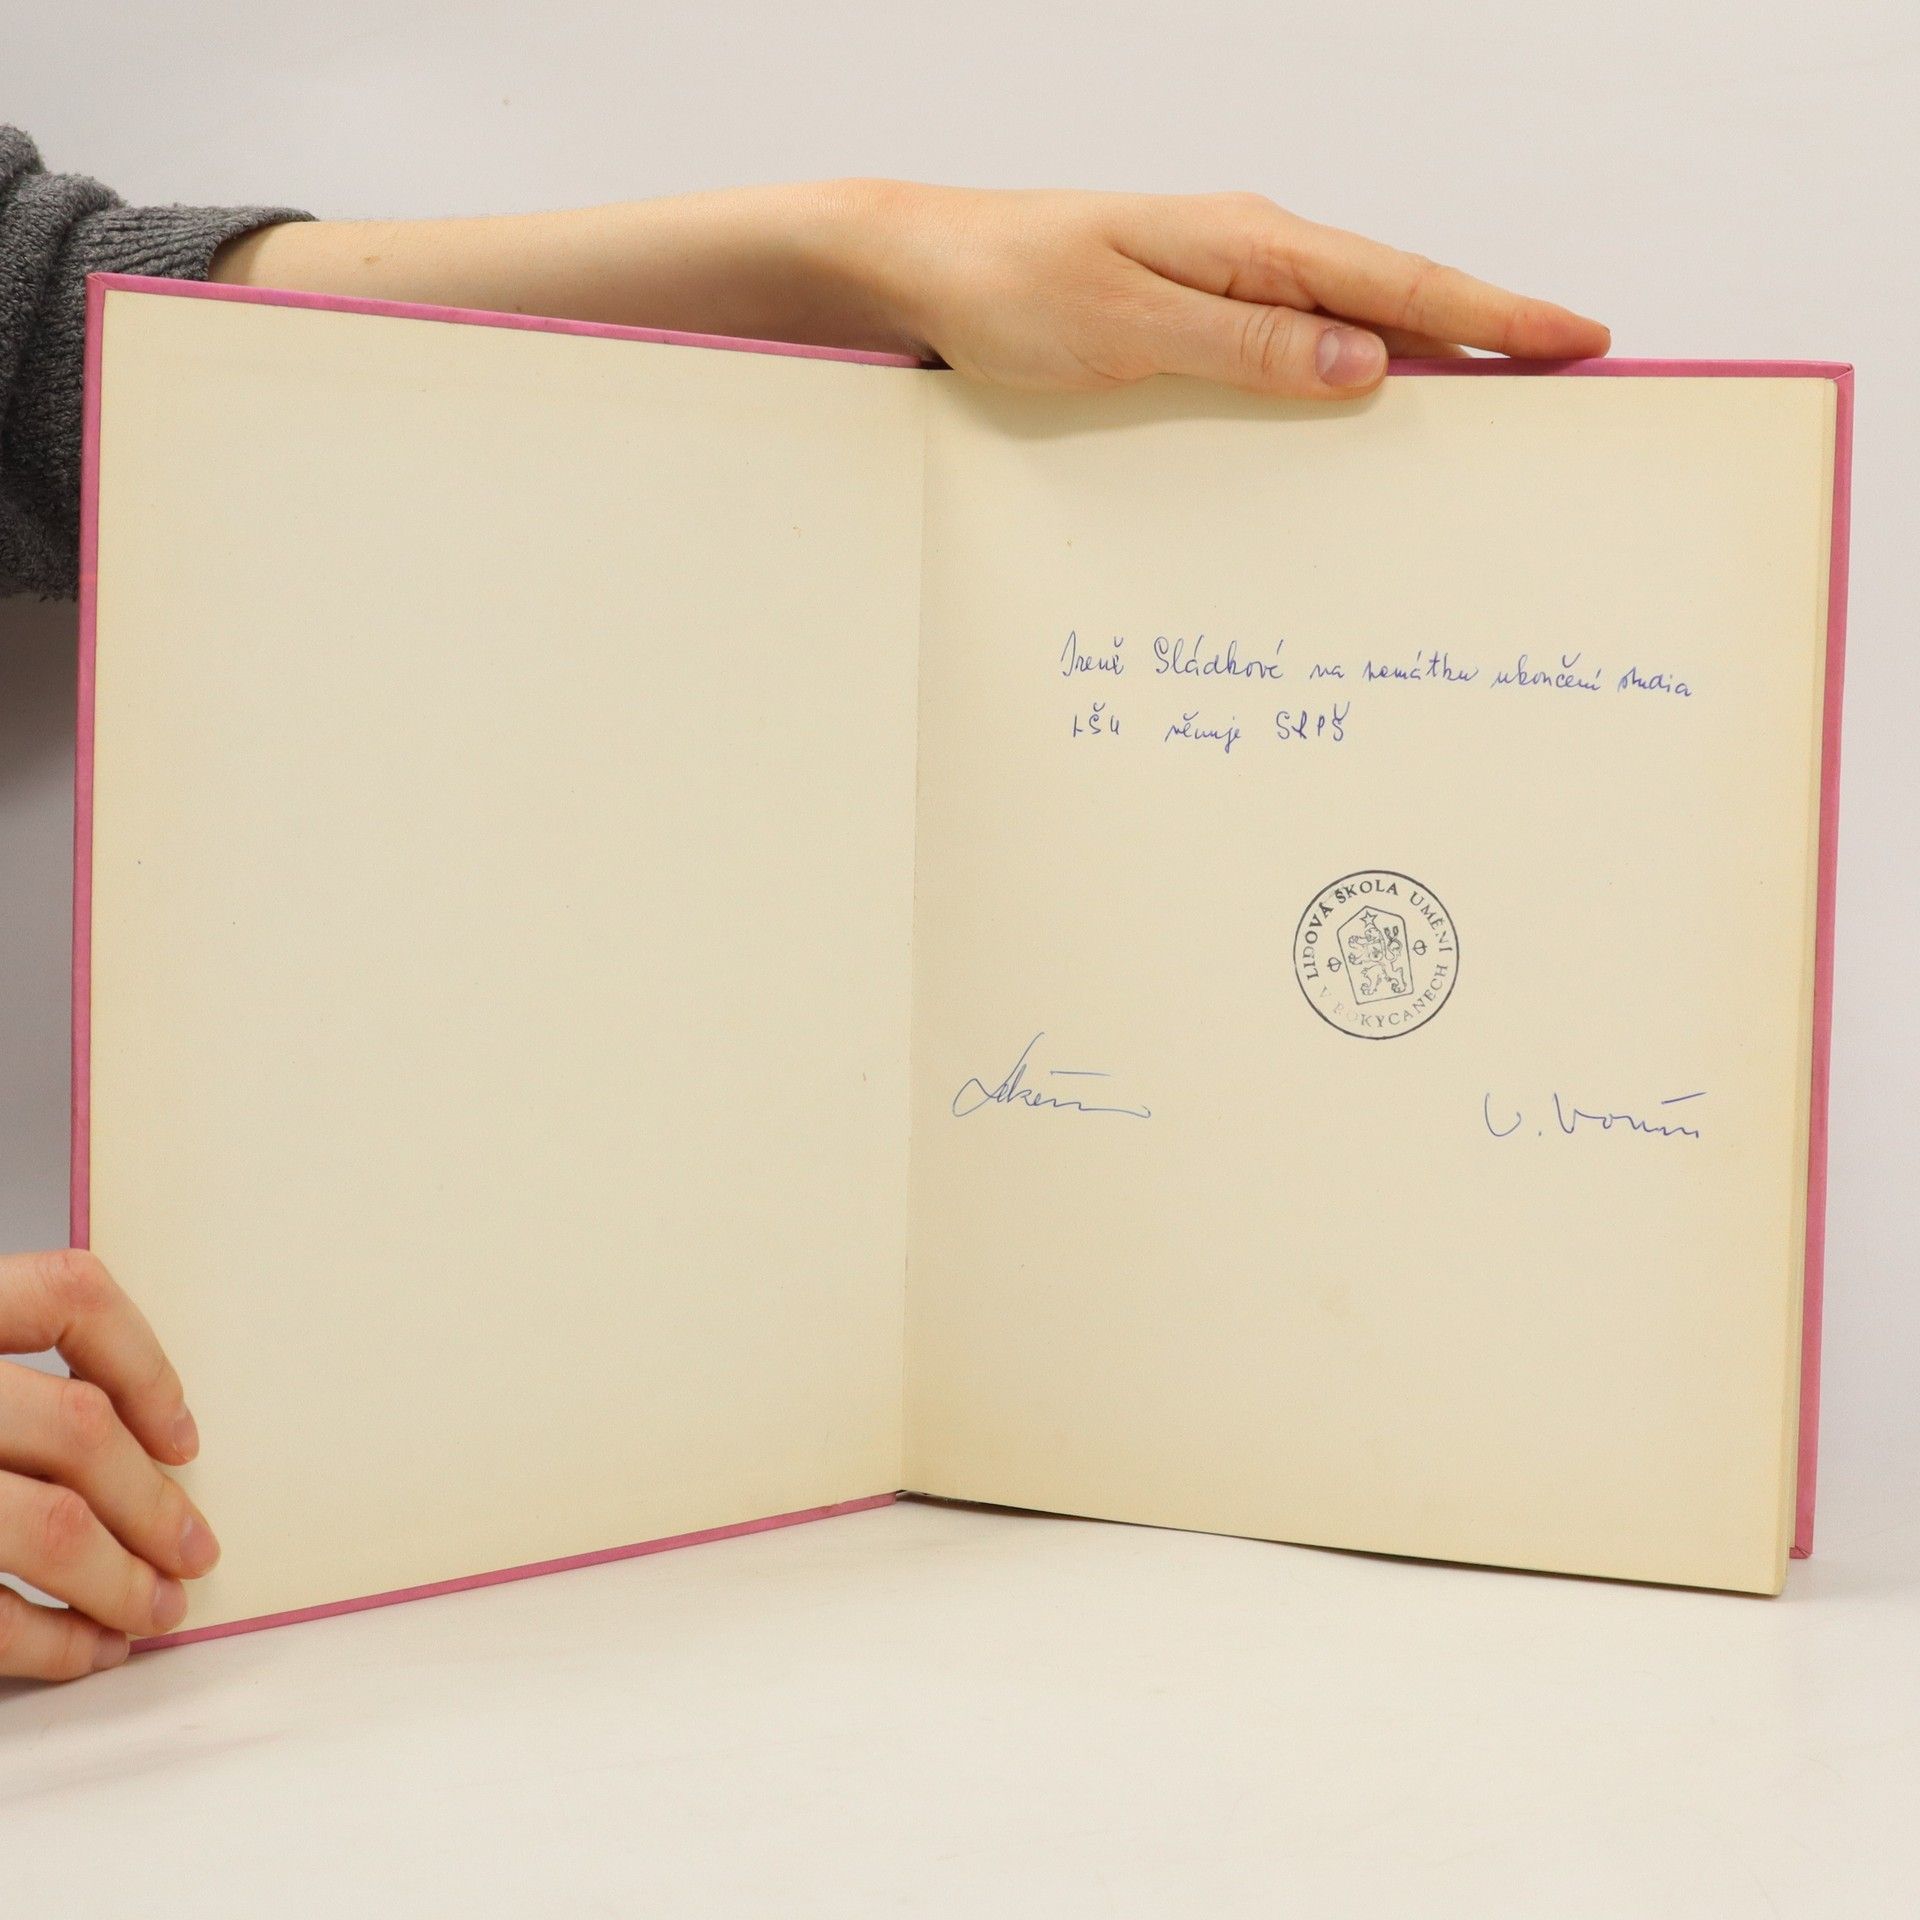 Ireně Sládkové na památku ukončení studia
LŠU věnuje SRPŠ
LIDOVÁ ŠKOLA UMĚNÍ
V ROKYCANECH